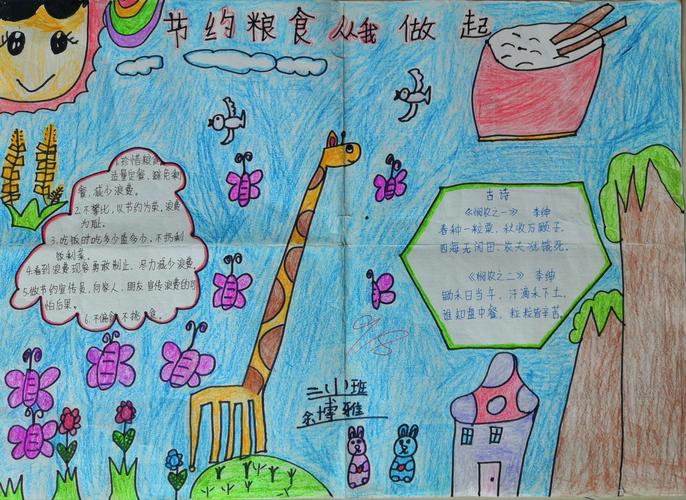 节约粮食从我做起
1.珍惜粮食
适量定餐、避免剩
餐，减少浪费。
2.不攀比，以节约为荣，浪费
为耻。
3.吃饭时吃多少盛多少，不扔剩
饭剩菜。
4.看到浪费现象勇敢制止，尽力减少浪费。
5.做节约宣传员，向家人、朋友宣传浪费的可
怕后果。
6.不偏食不挑食。
古诗
《悯农之一》 李绅
春种一粒粟，秋收万颗子。
四海无闲田，农夫犹饿死。
《悯农之二》 李绅
锄禾日当午，汗滴禾下土。
谁知盘中餐，粒粒皆辛苦。
二(1)班
余博雅